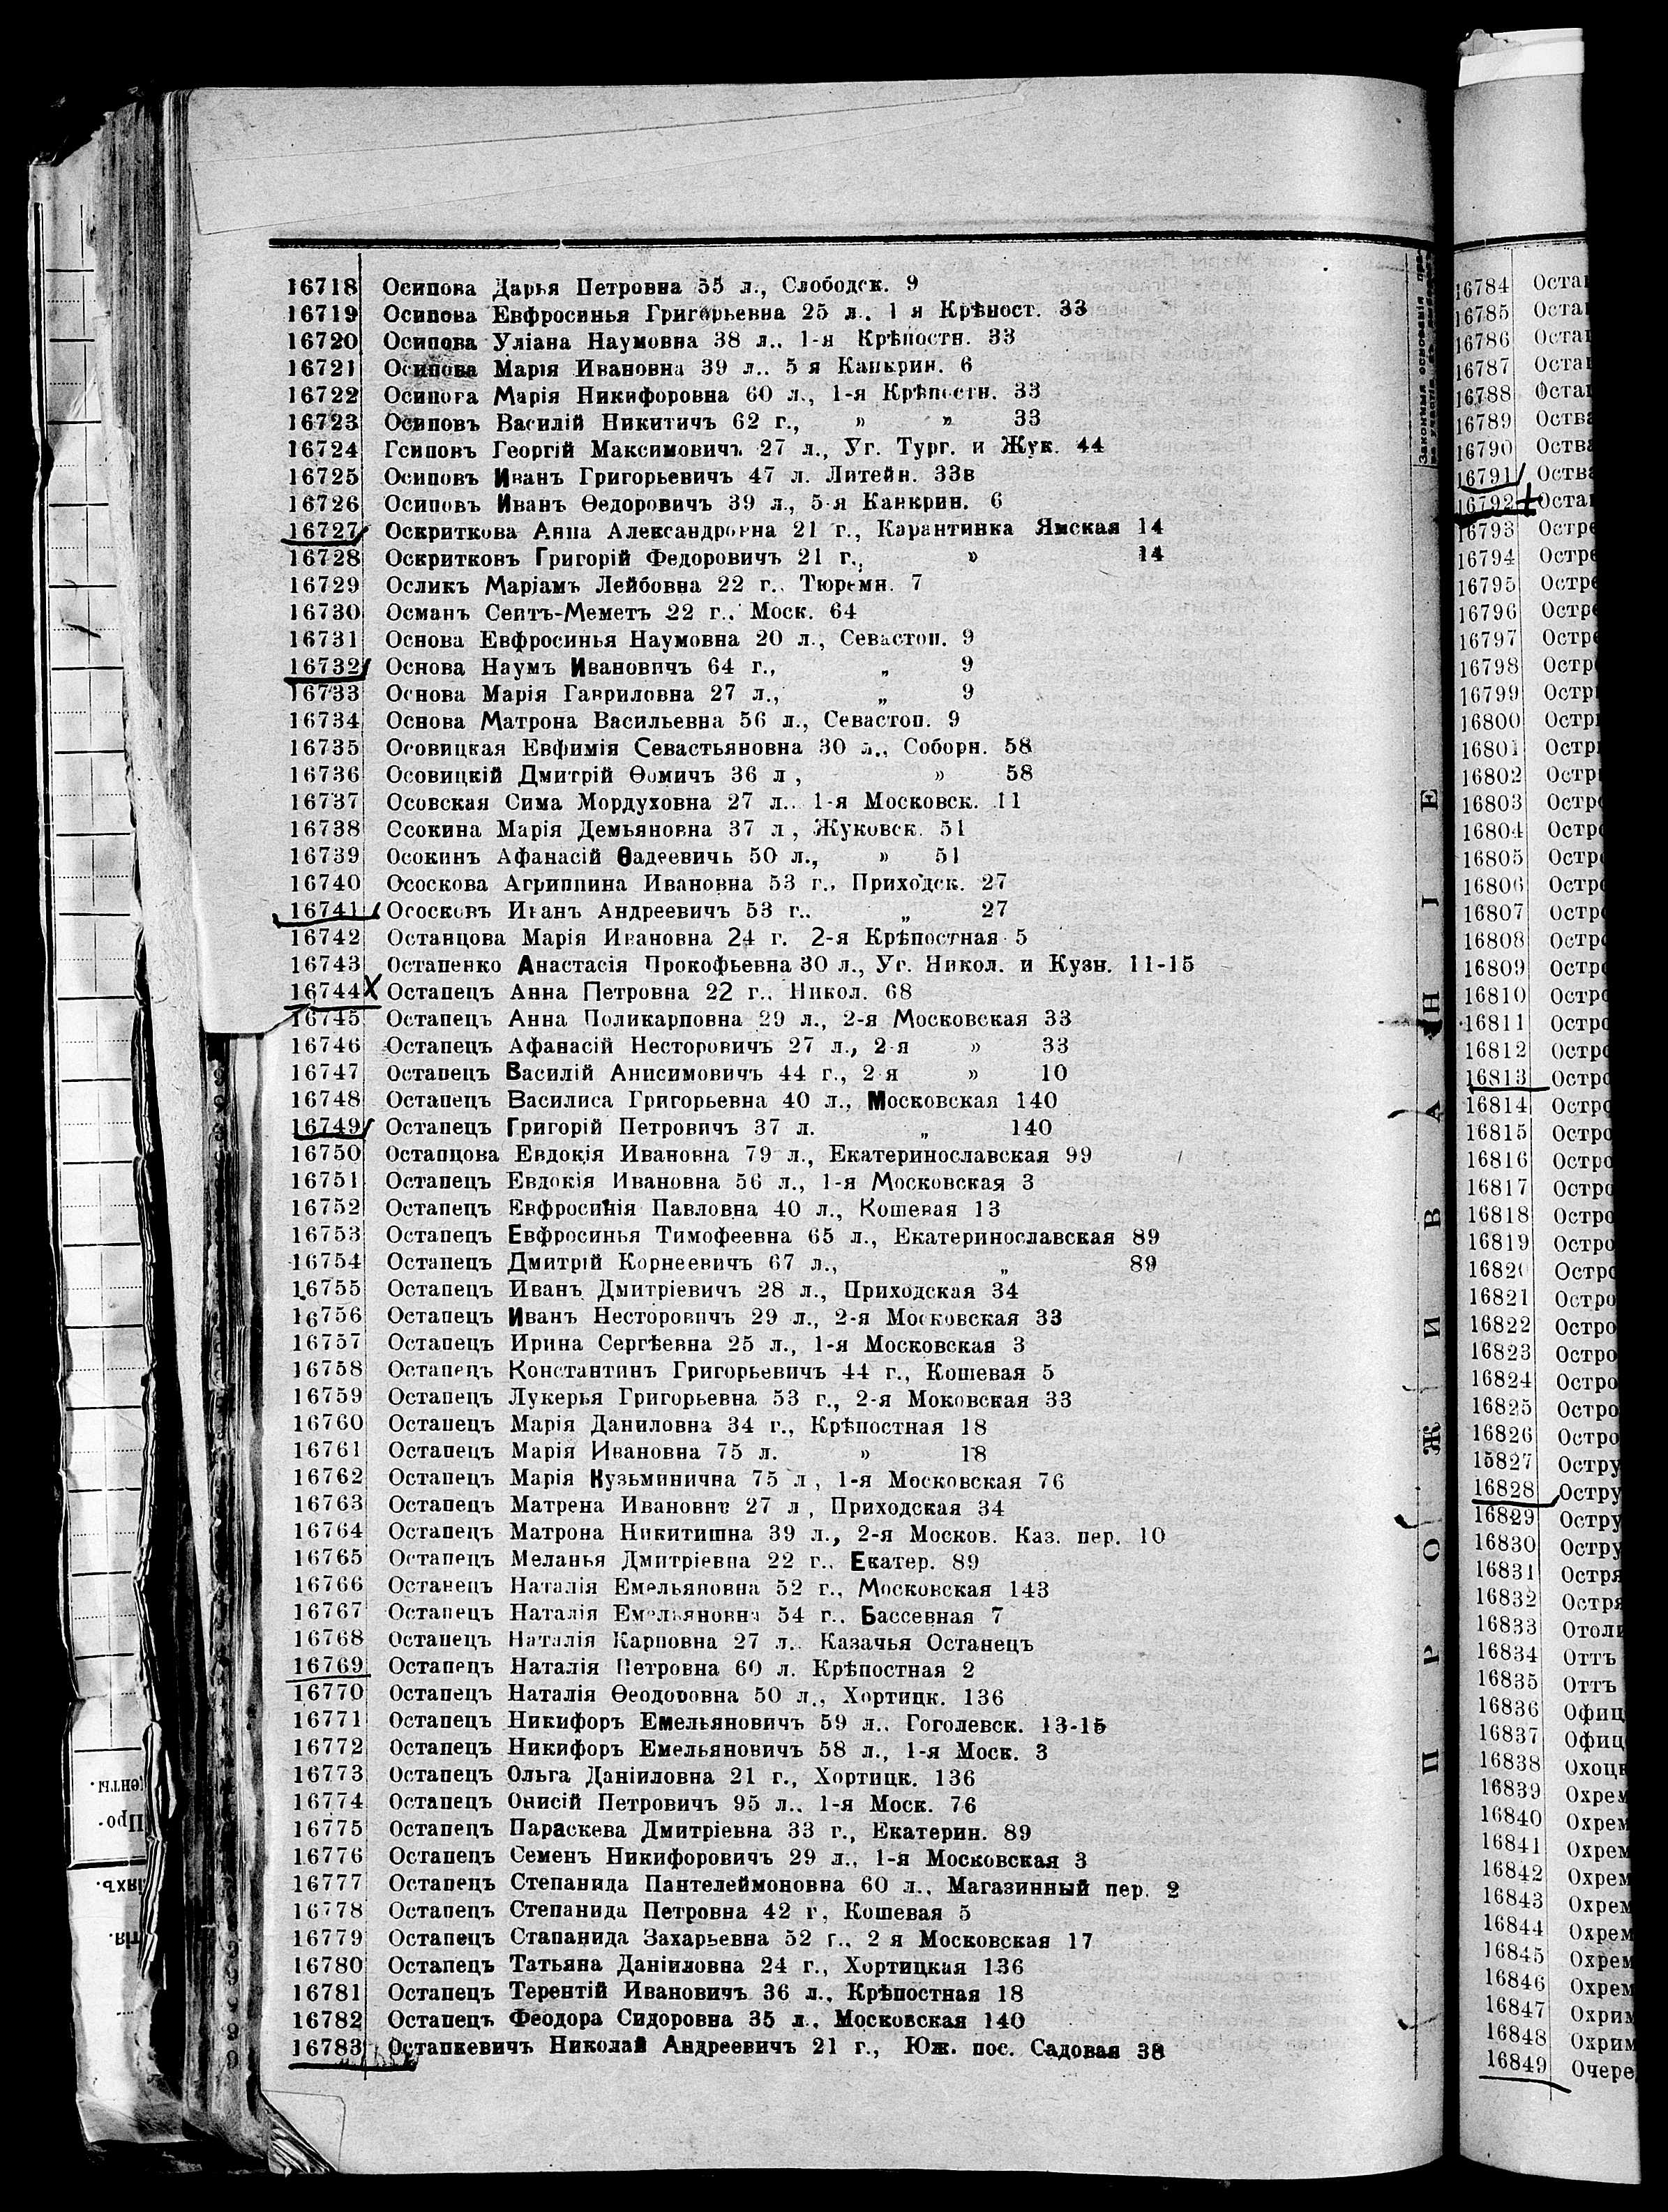 16718 Осипова Дарья Петровна 55 л., Слободск. 9
16719 Осипова Евфросинья Григорьевна 25 л.. 1 я Крѣпост. 33
16720 Осипова Уліана Наумовна 38 л.. 1-я Крѣпостн. 33
16721 Осипова Марія Ивановна 39 л.. 5 я Канкрин. 6
16722 Осипога Марія Никифоровна 60 л., 1-я Крѣпостн. 33
16723 Осиповъ Василій Никитичъ 62 г., » » 33
16724 Гсиповъ Георгій Максимовичъ 27 л., Уг. Тург. и Жук. 44
16725 Осиповъ Иванъ Григорьевичъ 47 л. Литейн. 33в
16726 Осиповъ Иванъ Ѳедоровичъ 39 л., 5-я Канкрин. 6
16727 Оскриткова Анна Александровна 21 г., Карантинка Ямская 14
16728 Оскритковъ Григорій Федоровичъ 21 г., » 14
16729 Осликъ Маріамъ Лейбовна 22 г.. Тюремн. 7
16730 Османъ Сеитъ-Меметъ 22 г.. Моск. 64
16731 Основа Евфросинья Наумовна 20 л., Севастоп. 9
16732 Основа Наумъ Ивановичъ 64 г., „ 9
16733 Основа Марія Гавриловна 27 л., „ 9
16734 Основа Матрона Васильевна 56 л., Севастоп. 9
16735 Осовицкая Евфимія Севастьяновна 30 л., Соборн. 58
16736 Осовицкій Дмитрій Ѳомичъ 36 л , » 58
16737 Осовская Сима Мордуховна 27 л.. 1-я Московск. 11
16738 Осокина Марія Демьяновна 37 л , Жуковск. 51
16739 Осокинъ Афанасій Ѳадеевичь 50 л., » 51
16740 Ососкова Агриппина Ивановна 53 г., Приходск. 27
16741 Ососковъ Иванъ Андреевичъ 53 г.. „ 27
16742 Останцова Марія Ивановна 24 г. 2-я Крѣпостная 5
16743 Остапенко Анастасія Прокофьевна 30 л., Уг. Никол. и Кузн. 11-15
16744 Остапецъ Анна Петровна 22 г.. Никол. 68
16745 Остапецъ Анна Поликарповна 29 л., 2-я Московская 33
16746 Остапецъ Афанасій Несторовичъ 27 л., 2-я » 33
16747 Остапецъ Василій Анисимовичъ 44 г., 2 я » 10
16748 Остапецъ Василиса Григорьевна 40 л., Московская 140
16749 Остапецъ Григорій Петровичъ 37 л. „ 140
16750 Остапцова Евдокія Ивановна 79 л., Екатеринославская 99
16751 Остапецъ Евдокія Ивановна 56 л., 1-я Московская 3
16752 Остапецъ Евфросинія Павловна 40 л., Кошевая 13
16753 Остапецъ Евфросинья Тимофеевна 65 л., Екатеринославская 89
16754 Остапецъ Дмитрій Корнеевичъ 67 л., „ 89
16755 Остапецъ Иванъ Дмитріевичъ 28 л., Приходская 34
16756 Остапецъ Иванъ Несторовичъ 29 л., 2-я Московская 33
16757 Остапецъ Ирина Сергѣевна 25 л., 1-я Московская 3
16758 Остапецъ Константинъ Григорьевичъ 44 г., Кошевая 5
16759 Остапецъ Лукерья Григорьевна 53 г., 2-я Моковская 33
16760 Остапецъ Марія Даниловна 34 г., Крѣпостная 18
16761 Остапецъ Марія Ивановна 75 л. » 18
16762 Остапецъ Марія Кузьминична 75 л , 1-я Московская 76
16763 Остапецъ Матрена Ивановна 27 л , Приходская 34
16764 Остапецъ Матрона Никитишна 39 л., 2-я Москов. Каз. пер. 10
16765 Остапецъ Меланья Дмитріевна 22 г.. Екатер. 89
16766 Останецъ Наталія Емельяновна 52 г., Московская 143
16767 Остапецъ Наталія Емельяновна 54 г.. Бассевная 7
16768 Остапецъ Наталія Карповна 27 л.. Казачья Останецъ
16769 Остапецъ Наталія Петровна 60 л. Крѣпостная 2
16770 Остапецъ Наталія Ѳеодоровна 50 л., Хортицк. 136
16771 Остапецъ Никифоръ Емельяновичъ 59 л.. Гоголевск. 13-15
16772 Остапецъ Никифоръ Емельяновичъ 58 л., 1-я Моск. 3
16773 Остапецъ Ольга Даніиловна 21 г., Хортицк. 136
16774 Остапецъ Онисій Петровичъ 95 л.. 1-я Моск. 76
16775 Остапецъ Параскева Дмитріевна 33 г., Екатерин. 89
16776 Остапецъ Семенъ Никифоровичъ 29 л., 1-я Московская 3
16777 Остапецъ Степанида Пантелеймоновна 60 л., Магазинный пер. 2
16778 Остапецъ Степанида Петровна 42 г, Кошевая 5
16779 Остапецъ Стапанида Захарьевна 52 г., 2 я Московская 17
16780 Остапецъ Татьяна Даніиловна 24 г., Хортицкая 136
16781 Остапецъ Терентій Ивановичъ 36 л., Крѣпостная 18
16782 Остапецъ Феодора Сидоровна 35 л., Московская 140
16783 Остапкевичъ Николай Андреевичъ 21 г., Юж. пос. Садовая 38
ПРОЖИВАНІЕ
16784 Оста
16785 Оста
16786 Оста
16787 Оста
16788 Оста
16789 Оства
16790 Оства
16791 Оства
16792 Оста
16793 Остре
16794 Остре
16795 Остре
16796 Остре
16797 Остре
16798 Остр
16799 Остр
16800 Остр
16801 Остр
16802 Остр
16803 Остро
16804 Остро
16805 Остро
16806 Остро
16807 Остро
16808 Остро
16809 Остро
16810 Остро
16811 Остро
16812 Остро
16813 Остро
16814 Остро
16815 Остро
16816 Остро
16817 Остро
16818 Остро
16819 Остро
1682 Остро
16821 Остро
16822 Остро
16823 Остро
16824 Остро
16825 Остро
16826 Остро
15827 Остру
16828 Остру
16829 Остру
16830 Остру
16831 Остря
16832 Остря
16833 Отоли
16834 Оттъ
16835 Оттъ
16836 Офиц
16837 Офиц
16838 Охоцк
16839 Охрем
16840 Охрем
16841 Охрем
16842 Охрем
16843 Охрем
16844 Охрем
16845 Охрем
16846 Охрем
16847 Охрим
16848 Охрим
16849 Очере